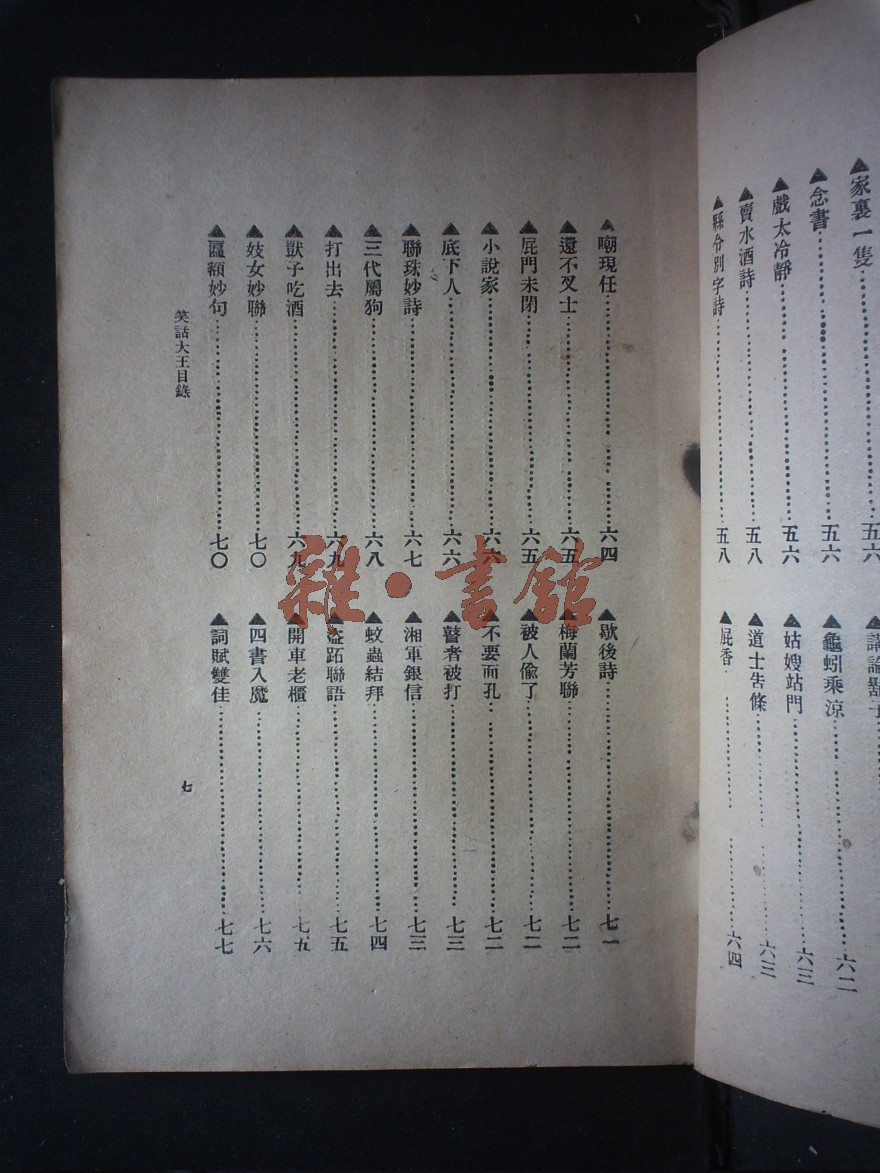 ▲家裏一隻⋯⋯五六
▲念書⋯⋯五六
▲戲太冷靜⋯⋯五六
▲賣水酒詩⋯⋯五八
▲縣令別字詩⋯⋯五八
▲龜蚓乘涼⋯⋯六二
▲姑嫂站門⋯⋯六三
▲道士吿條⋯⋯六三
▲屁香⋯⋯六四
▲嘲現任⋯⋯六四
▲還不叉士⋯⋯六五
▲屁門未閉⋯⋯六五
▲小說家⋯⋯六六
▲底下人⋯⋯六六
▲聯珠妙詩⋯⋯六七
▲三代屬狗⋯⋯六八
▲打出去⋯⋯六九
▲獃子吃酒⋯⋯六九
▲妓女妙聯⋯⋯七〇
▲匾額妙句⋯⋯七〇
▲歇後詩⋯⋯七一
▲梅蘭芳聯⋯⋯七二
▲被人偸了⋯⋯七二
▲不要而孔⋯⋯七二
▲瞽者被打⋯⋯七三
▲湘軍銀信⋯⋯七三
▲蚊蟲結拜⋯⋯七四
▲盜跖聯語⋯⋯七五
▲開車老櫃⋯⋯七五
▲四書入魔⋯⋯七六
▲詞賦雙佳⋯⋯七七
笑話大王目錄
七
雜·書館